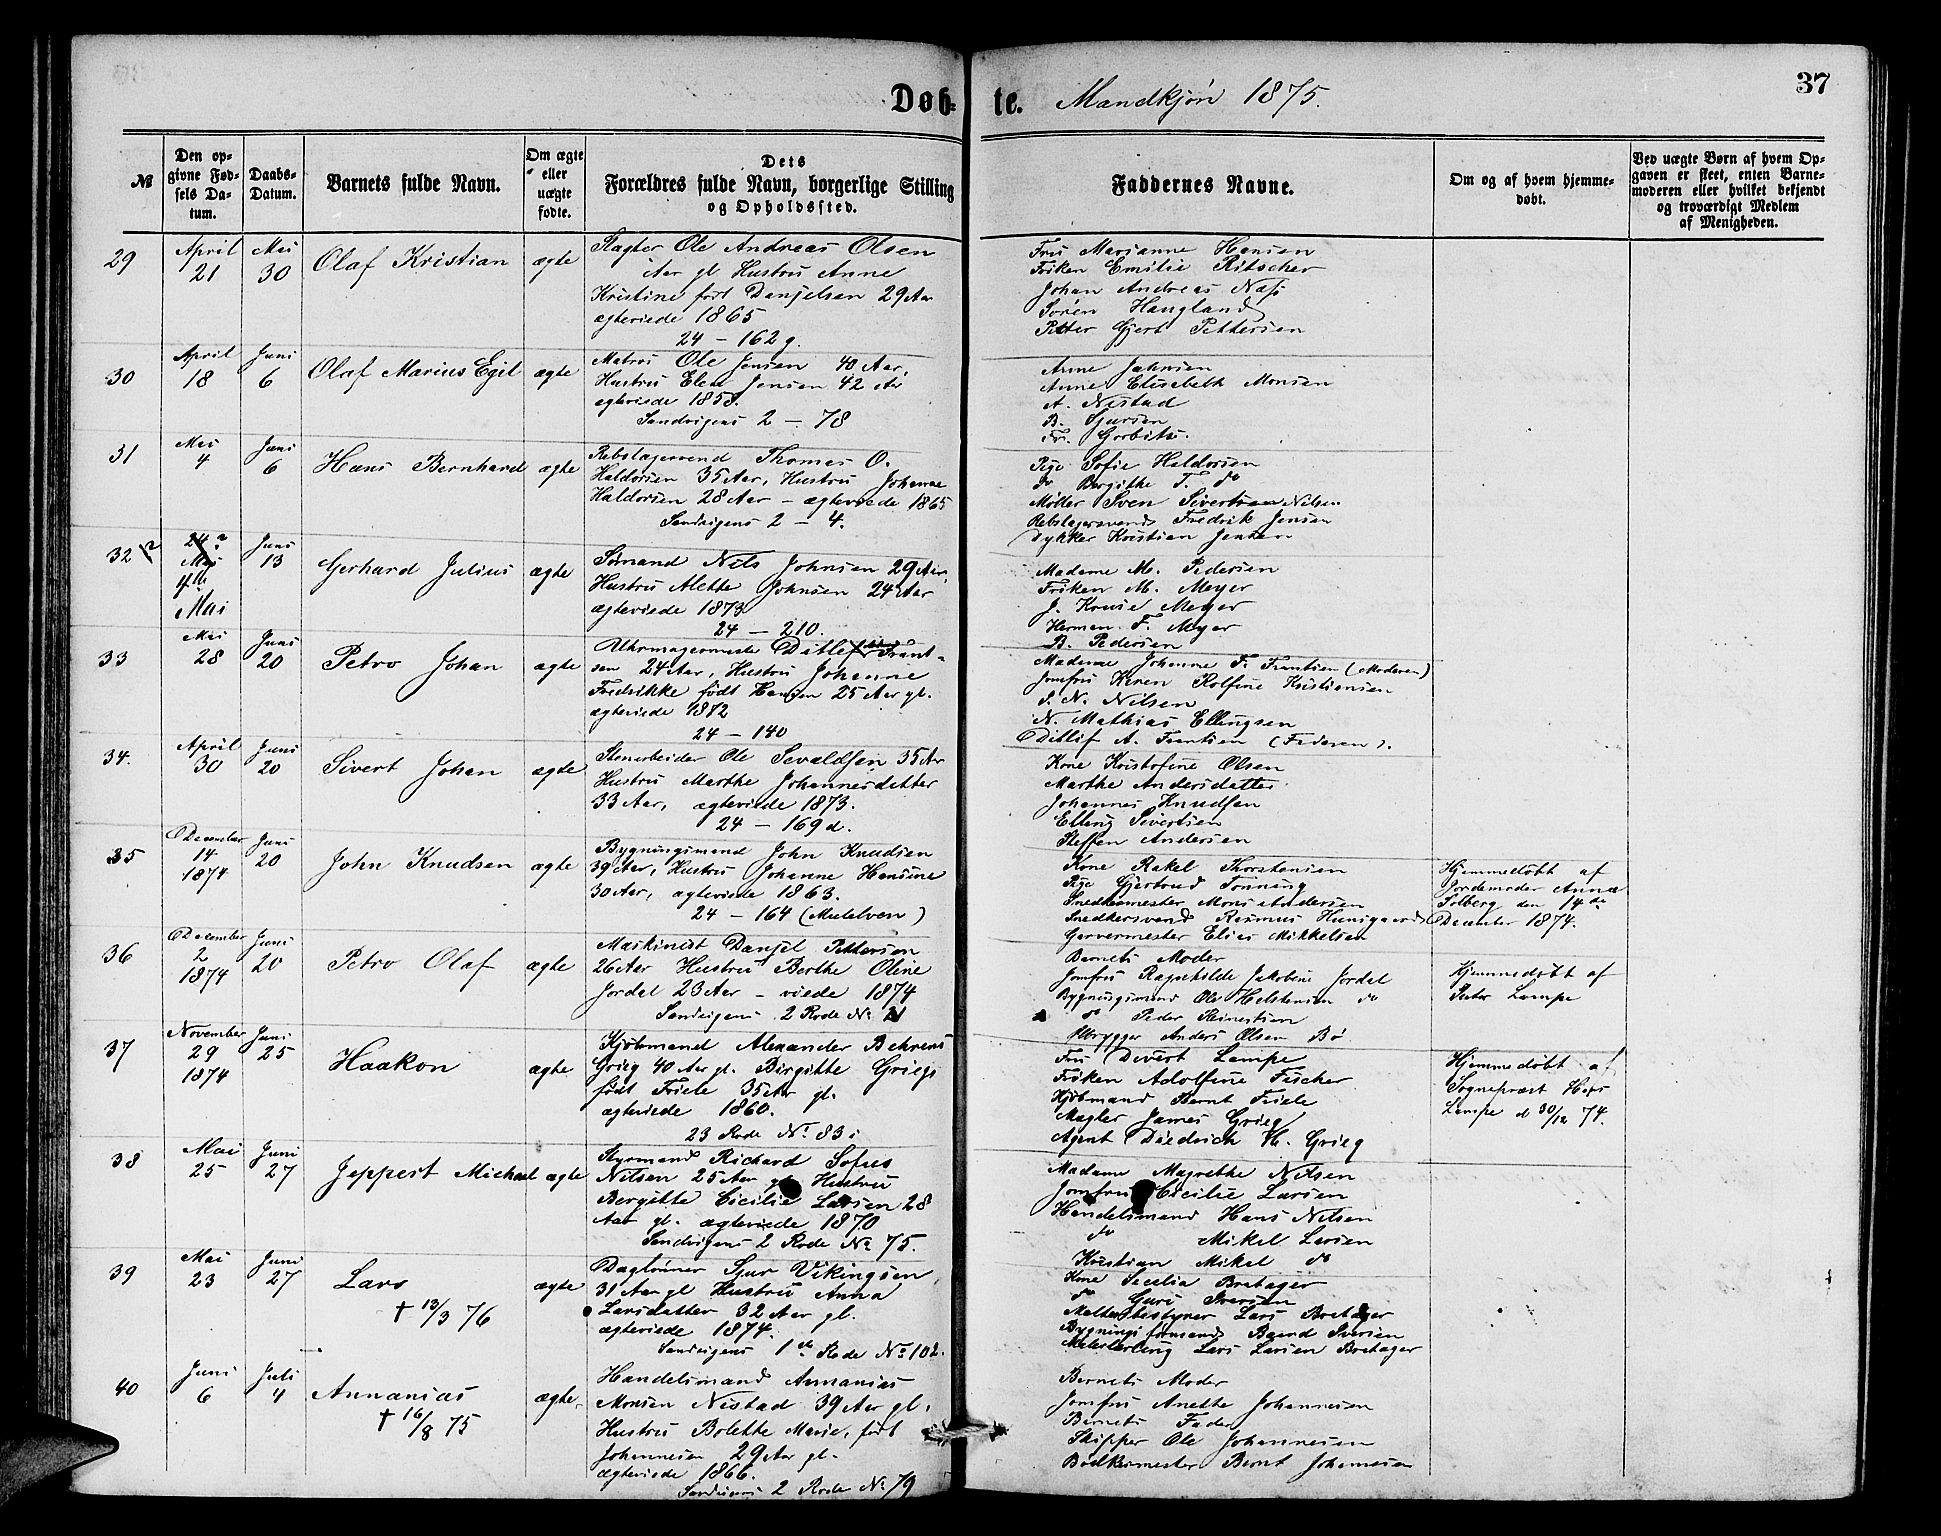 Døb-te. Mandkjøn 1875.
37
№
Den opgivne Fødsels Datum.
Daabs-Datum.
Barnets fulde Navn.
Om ægte eller uægte fødte.
Dets Forældres fulde Navn, borgerlige Stilling og Opholdssted.
Faddernes Navne.
Om og af hvem hjemmedøbt.
Ved uægte Børn af hvem Opgaven er skeet, enten Barnemoderen eller hvilket bekjendt og troværdigt Medlem af Menigheden.
29
April 21
Mai 30
Olaf Kristian
ægte
Slagter Ole Andreas Olsen
Aar gl Hustru Anne
Kristine født Danjelsen 29 Aar
ægteviede 1865
24 – 162 g.
Fru Marianne Hansen
Frøken Emilie Ritscher
Johan Andreas Næss
Søren Haugland
Petter Gjert Pettersen
30
April 18
Juni 6
Olaf Marius Egil
ægte
Matros Ole Jensen 40 Aar,
Hustru Elen Jensen 42 Ar
ægteviede 1858.
Sandvigens 2 – 78
Anne Jahnsen
Anne Elisabeth Monsen
A. Nistad
B. Sjursen
31
Mai 4
Juni 6
Hans Bernhard
ægte
Rebslagersvend Thomas O.
Haldorsen 35 Aar, Hustru Johanne
Haldorsen 28 Aar – ægteviede 1865
Sandvigens 2 – 4.
Pige Sofie Haldorsen
do Bergithe T. do
Møller Sven Sivertsen Nilsen
Rebslagersvend Fredrik Jensen
Dykker Kristian Jensen
32
24 ?
Mai
4de
Mai
Juni 13
Gerhard Julius
ægte
Sømand Nils Johnsen 29 Aar,
Hustru Alette Johnsen 24 Aar
ægteviede 1873
24 – 210.
Madame M. Pedersen
Frøken M. Meyer
J. Kruse Meyer
Herman F. Meyer
B. Pedersen
33
Mai 28
Juni 20
Petro Johan
ægte
Uhrmagermester Ditlef Frant-
sen 24 Aar, Hustru Johanne
Fredrikke født Hansen 25 Aar gl.
ægteviede 1872
24 – 140
Madame Johanne F. Frantsen (Moderen)
Jomfru Karen Rolfine Kristiansen
S. N. Nilsen
N. Mathias Ellingsen
Ditlif A. Frantsen (Faderen).
34.
April 30
Juni 20
Sivert Johan
ægte
Stenarbeider Ole Sevaldsen 35 Ar
Hustru Marthe Johannesdatter
33 Aar, ægteviede 1873.
24 – 169 d.
Kone Kristofine Olsen
Marthe Andersdatter
Johannes Knudsen
Elling Sivertsen
Steffen Andersen
35
December 14 1874
Juni 20
John Knudsen
ægte
Bygningsmand John Knudsen
39 Aar, Hustru Johanne Hansine
30 Aar, ægteviede 1863.
24 – 164 (Møllelven)
Kone Rakel Thorstensen
Pige Gjertrud Tonning
Snedkermester Mons Andersen
Snedkersvend Rasmus Hunsgaard
Garvermester Elias Mikkelsen
Hjemmedøbt af
Jordemoder Anna
Solberg den 14de
December 1874.
36
December 2 1874
Juni 20
Petro Olaf
ægte
Maskinist Danjel Pettersen
26 Aar Hustru Berthe Oline
Jordal 23 Aar – viede 1874
Sandvigens 2 Rode No 21
Barnets Moder
Jomfru Ragnhilde Jakobine Jordal
Bygningsmand Ole Helstensen do
do Peder Steinestien
Ølbrygger Anders Olsen Bø
Hjemmedøbt af
Peter Lampe
37
November 29 1874
Juni 25
Haakon
ægte
Kjøbmand Alexander Behrens
Grieg 40 Aar gl. Birgitte Griegs
født Friele 35 Aar gl.
ægteviede 1860.
23 Rode No 83 i
Fru Divert Lampe
Frøken Adolfine Fischer
Kjøbmand Bernt Friele
Mægler James Grieg
Agent Diedrich M. Grieg
Hjemmedøbt af
Sogneprest Hars
Lampe d 30/12 74.
38
Mai 25
Juni 27
Jeppert Michael
ægte
Styrmand Richard Sofus
Nilsen 25 Aar gl Hustru
Bergitte Cicilie Larsen 28
Aar gl. ægteviede 1870
Sandvigens 2 Rode No 75.
Madame Magrethe Nilsen
Jomfru Cicilie Larsen
Handelsmand Hans Nilsen
do Mikel Larsen
Kristian Mikel do
39
Mai 23
Juni 27
Lars
† 13/3 76
ægte
Daglønner Sjur Vikingsen
31 Aar gl Hustru Anna
Larsdatter 32 Aar gl.
ægteviede 1874.
Sandvigens 1ste Rode No 102.
Kone Secelia Bretager
do Guri Iversen
Lars Bretager
Bygnings formand Baard Iversen
Malerlærling Lars Larsen Bretager
40
Juni 6
Juli 4
Annanias
† 16/8 75
ægte
Handelsmand Annanias
Monsen Nistad 39 Aar gl.
Hustru Bolette Marie, født
Johannesen 29 Aar gl.
ægteviede 1866.
Sandvigens 2 Rode No 79
Barnets Moder
Jomfru Anette Johannesen
Barnets Fader
Skipper Ole Johannesen
Bødkermester Bernt Johannesen